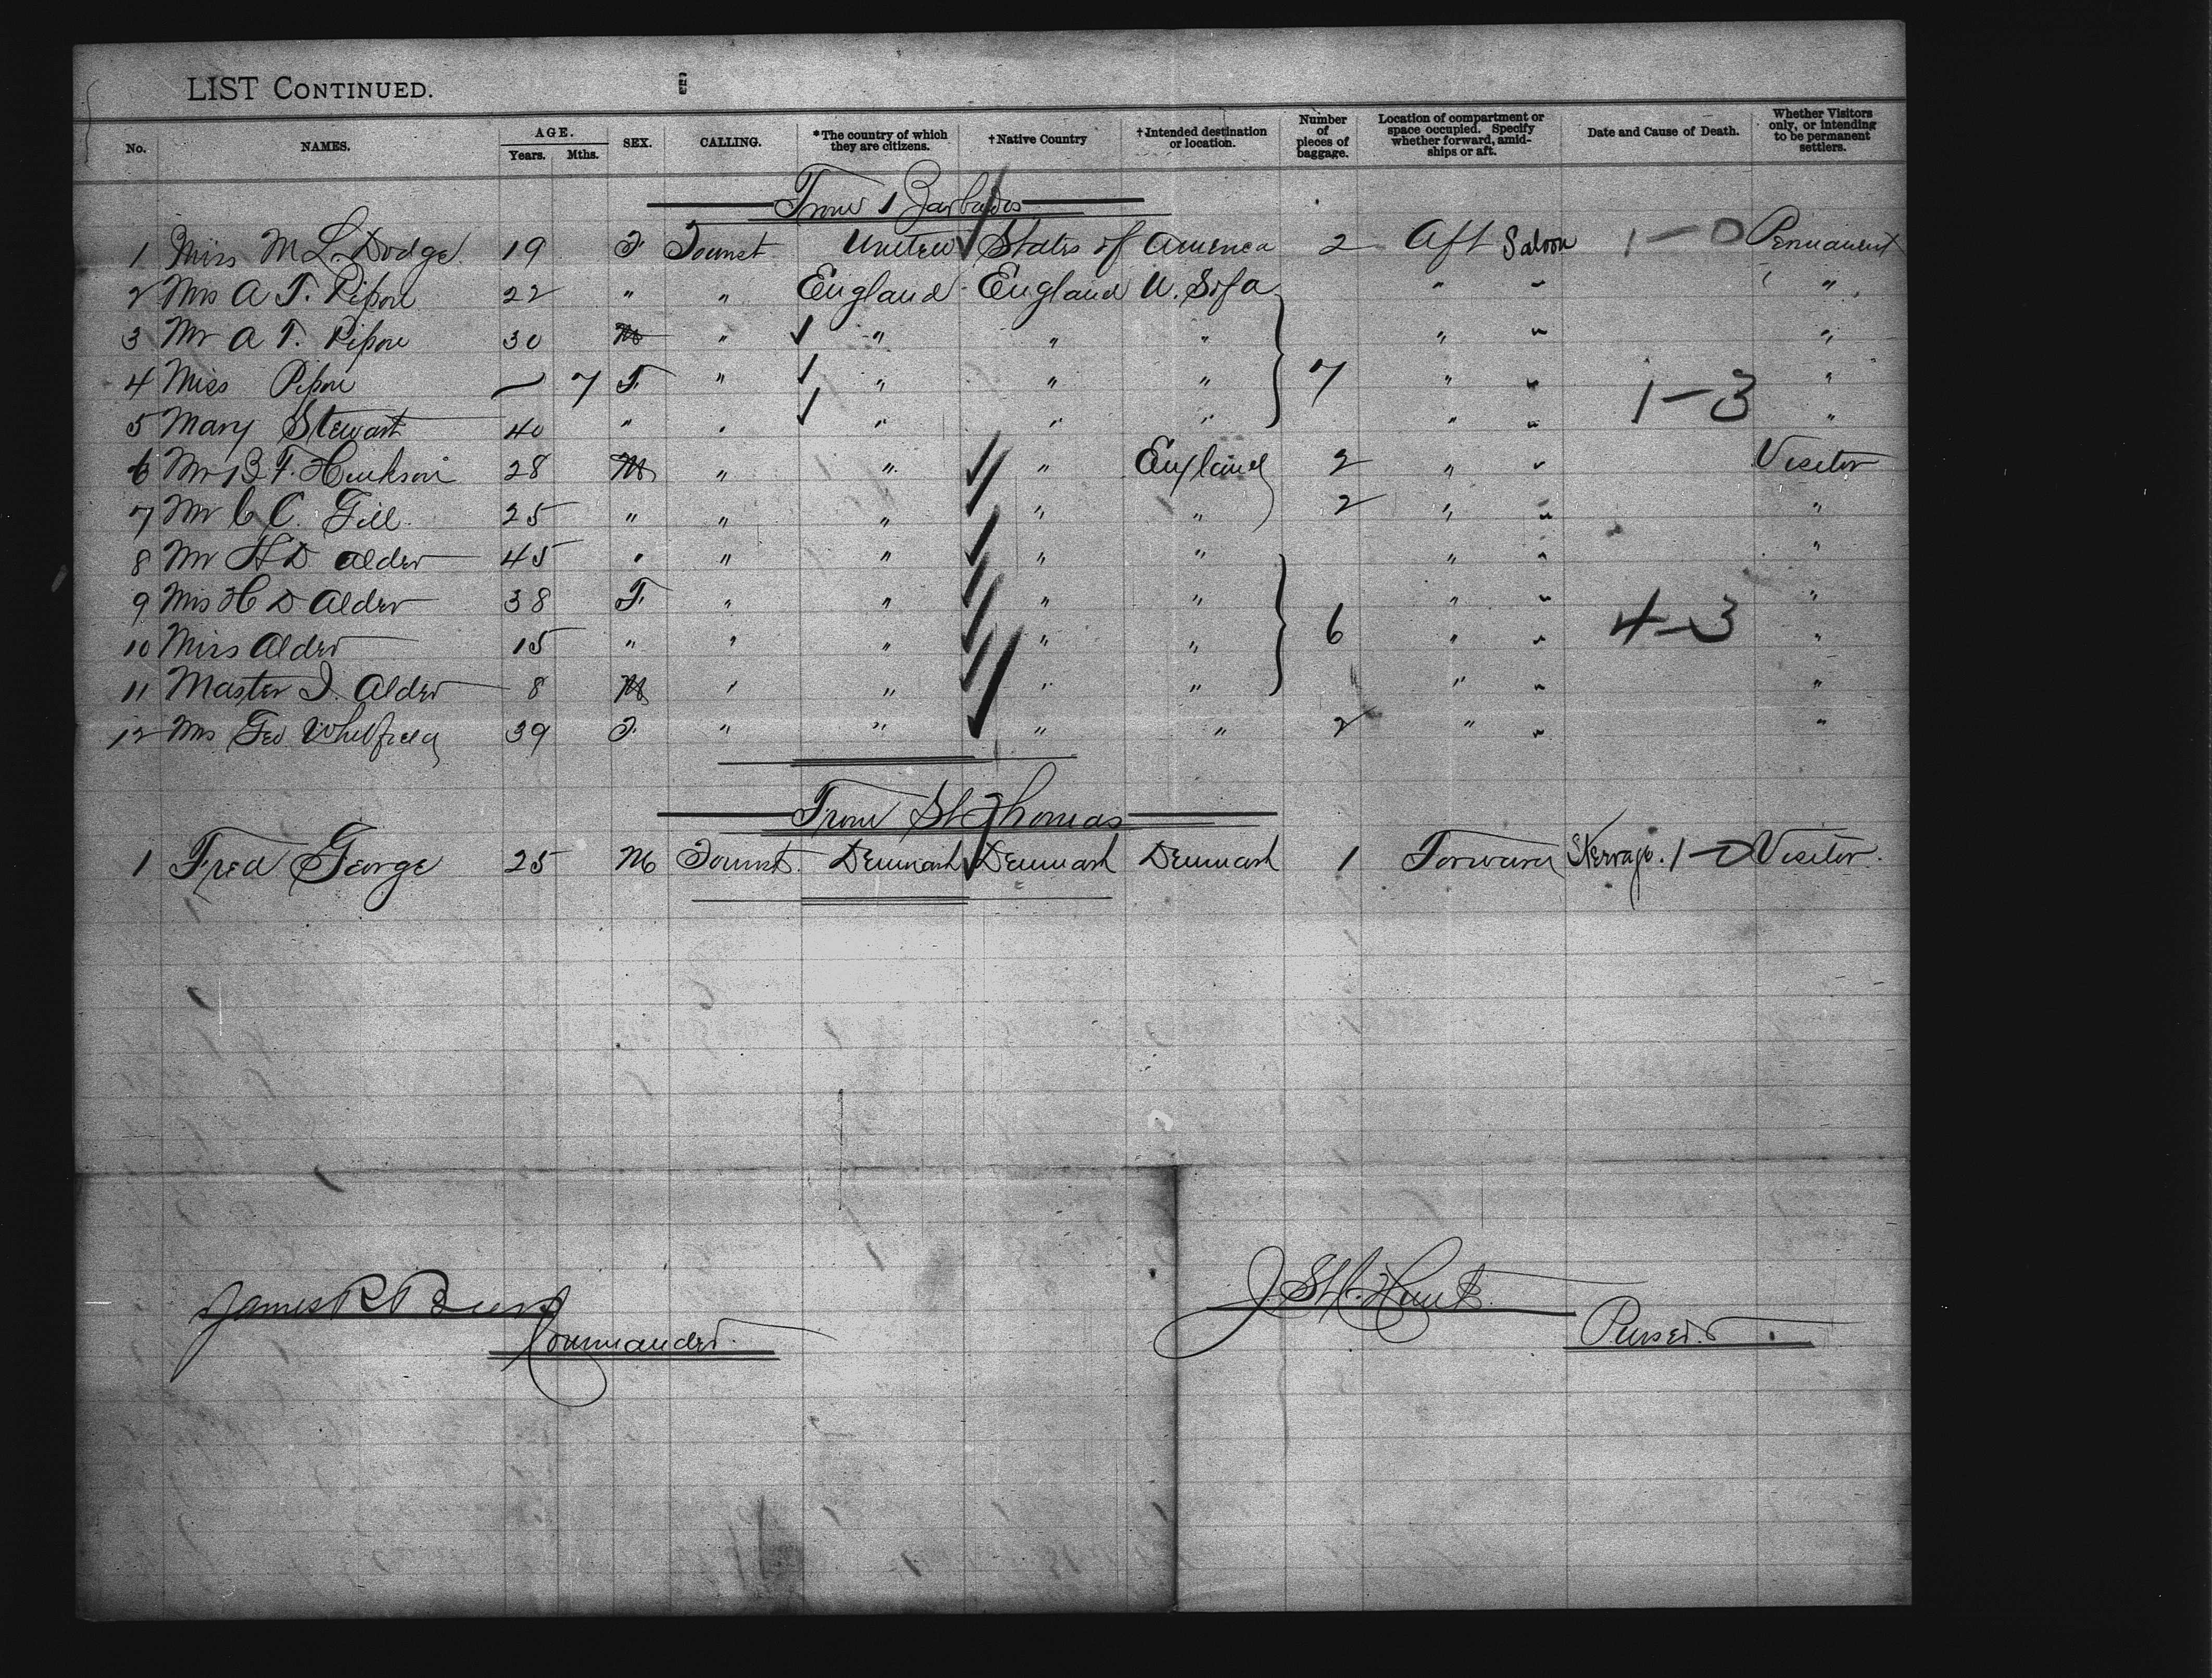 LIST CONTINUED.
No. NAMES. AGE. Years. Mths. SEX. CALLING. *The country of which they are citizens. †Native Country †Intended destination or location. Number of pieces of baggage. Location of compartment or space occupied. Specify whether forward, amidships or aft. Date and Cause of Death. Whether Visitors only, or intending to be permanent settlers.
From Barbados
1 Miss M L. Dodge 19 F Tourist United States of America 2 Aft Saloon 1-0 Permanent
2 Mrs A T. Pipon 22 " " England England U. S of a " " "
3 Mr A T. Pipon 30 M " " " " " " "
4 Miss Pipon 7 F " " " " 7 " " 1-3 "
5 Mary Stewart 40 " " " " " " " "
6 Mr B F. 28 M " " " England 2 " " Visitor
7 Mr C C. Gill 25 " " " " " 2 " " "
8 Mr H D Alder 45 " " " " " " " "
9 Mrs H D Alder 38 F " " " " " " 4-3 "
10 Miss Alder 15 " " " " " 6 " " "
11 Master I. Alder 8 M " " " " " " "
12 Mrs Geo 39 F " " " " 2 " " "
From St Thomas
1 Fred George 25 M Tourist. Denmark Denmark Denmark 1 Forward Steerage. 1-0 Visitor.
James R
Commander.
Hunt
Purser.